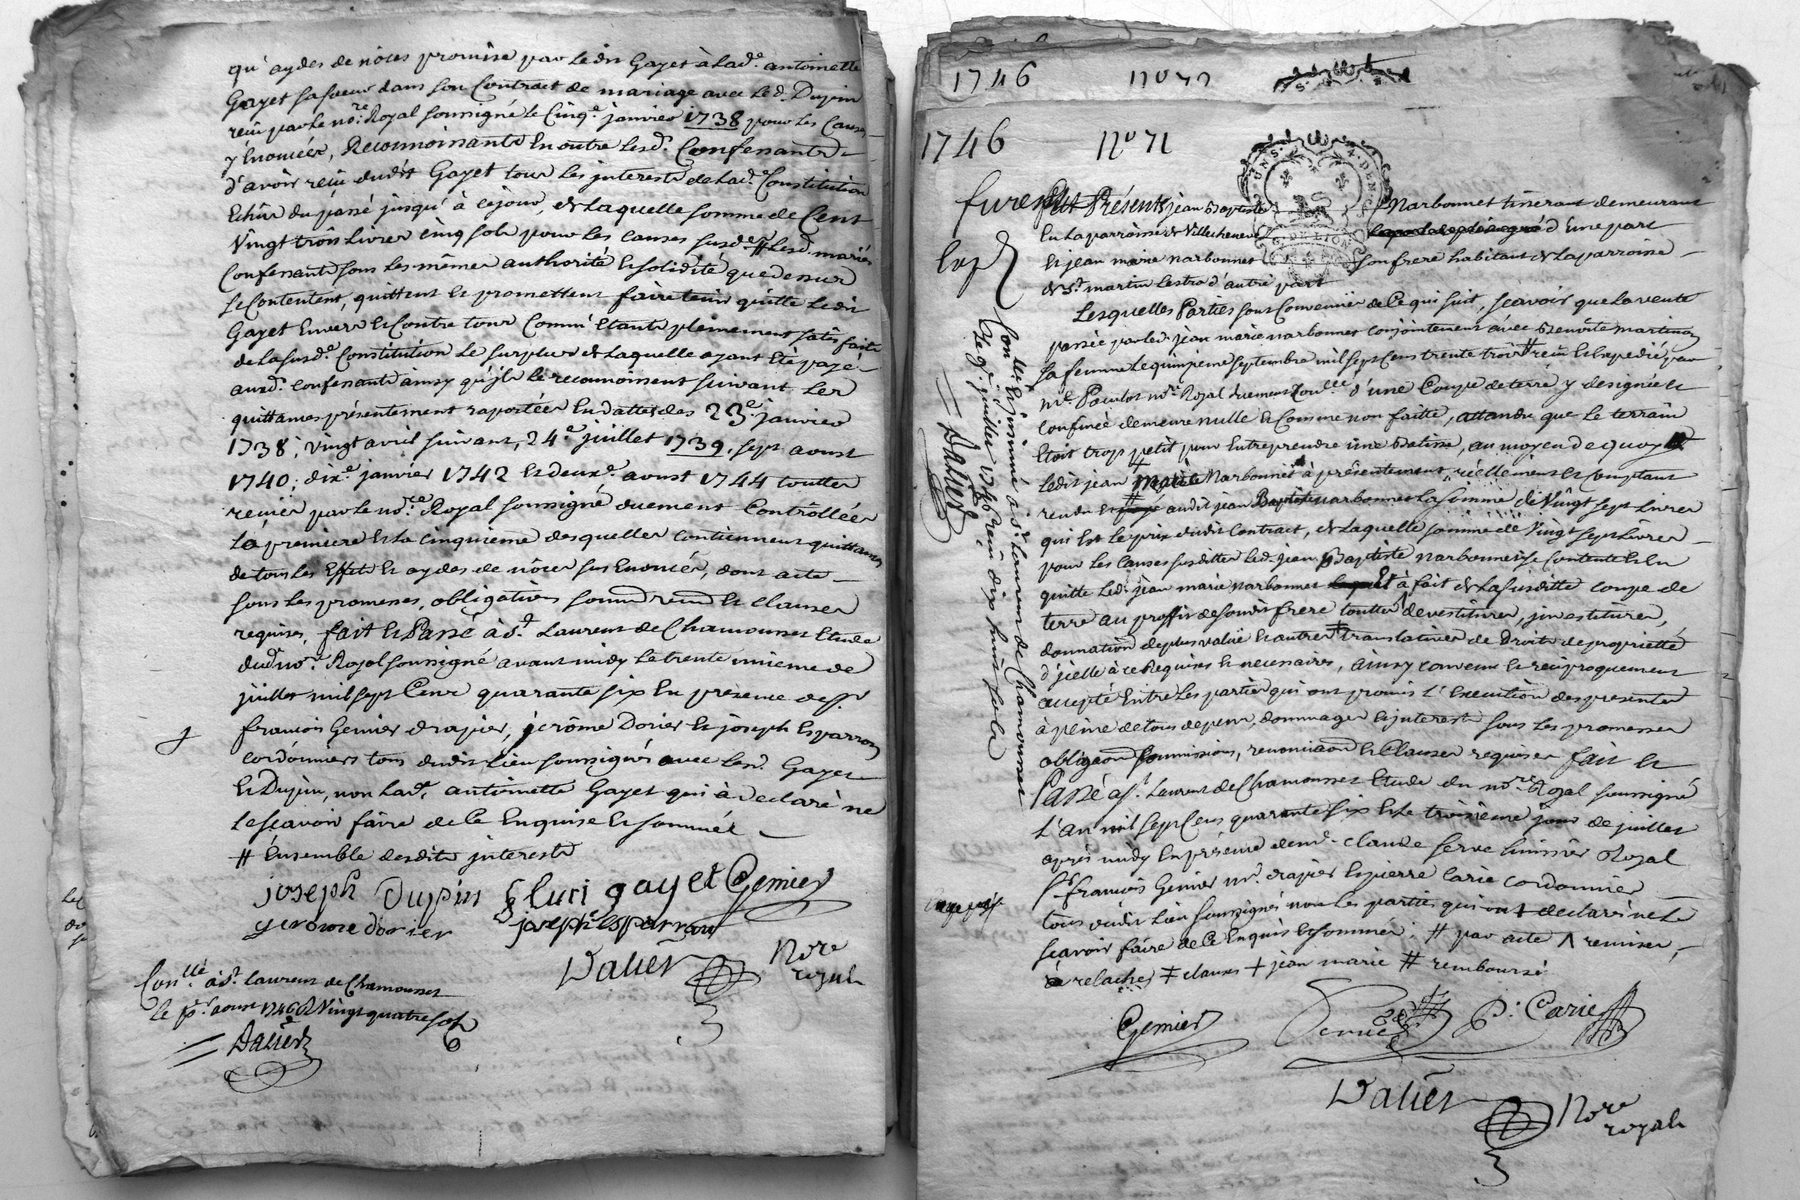 qu'aydes de nôces promise par ledit Gayet à lad.e antoinette
Gayet sa soeur dans son Contrat de mariage avec led. Dupin
reçu par le no.re Royal soussigné le Cinq.e janvier 1738 pour les Causes
y Enoncées, Reconnoissants En outre lesd. Confessants
d'avoir reçu dudit Gayet tous les jnterests de lad.e Constitution
Echus du passé jusqu'à ce jour, de laquelle somme de Cent
Vingt trois Livres cinq sols pour les causes susd.es # lesd. mariés
Confessants sous les mêmes authorité et solidité que dessus
se Contentent, quittent et promettent faire tenir quitte ledit
Gayet Envers et Contre tous Comm' Etants pleinement satisfaits
de la susd.e Constitution le surplus de laquelle ayant Eté payé
auxd. confessants ainsy qu'jls le reconnoissent suivant les
quittances présentement raportées En dattes des 23.e janvier
1738, vingt avril suivant, 24.e juillet 1739, sept aoust
1740, dix.e janvier 1742 et deux.e aoust 1744 touttes
reçues par le no.re Royal soussigné duement Contrôllées
la premiere et la cinquieme desquelles contiennent quittances
de tous les Effets et aydes de nôces sus Enoncés, dont acte
sous les promesses, obligations soum.ons renon.ons et clauses
requises, fait et Passé à S.t Laurent de Chamousset Etude
dud. no.re Royal soussigné avant midy le trente unieme de
juillet mil sept Cent quarante six En presence de s.r
françois Genier drapier, jerôme Dorier et joseph Esparron
cordonniers tous dudit lieu soussignés avec lesd. Gayet
Et Dupin, non lad.e antoinette Gayet qui à declaré ne
le sçavoir faire de ce Enquise et sommée
# Ensemble desdits jnterests
joseph Dupin luci gayet Genier
gerome dorier joseph esparron
Dalier Nore royal
Con.llé à S.t Laurent de Chamousset
le p.r aoust 1746 R Vingt quatre sols
Dalier
1746 n° 72
1746 n° 71
GEN. DE LION
furent Présents jean Baptiste Narbonnet tisserant demeurant
En la parroisse de Villechenève d'une part
Et jean marie narbonnet son frere habitant de la parroisse
de S.t martin Lestra d'autre part
Lesquelles Parties sont Convenües de Ce qui suit, sçavoir que la vente
passée par led. jean marie narbonnet conjointement avec Benoîte martinon
sa femme le quinzieme septembre mil sept cens trente trois # reçu et Expedié par
m.e no.re Royal duement Con.llée d'une Coupe de terre y designée et
confinée demeure nulle et Comme non faitte, attendu que le terrain
Etoit trop petit pour Entreprendre une Batisse, au moyen de quoy
ledit jean Narbonnet à présentement reéllement et comptant
rendu et # audit jean Baptiste narbonnet la somme de Vingt sept Livres
qui Est le prix dudit Contract, de laquelle somme de Vingt sept Livres
pour les causes susdittes led. jean Baptiste narbonnet se contente et En
quitte led. jean marie narbonnet à fait de la susditte coupe de
terre au proffit de son dit frere touttes devestitures, jnvestitures,
donnation de plus value et autres ‡ translatives de Droits de proprieté
d'jcelle à ce Requises et necessaires, ainsy convenu et reciproquement
accepté Entre les parties qui ont promis l'Execution des presentes
à peine de tous depens, dommages et jnterests sous les promesses
obliga.ons soumissions, renonciaons et Clauses requises fait et
Passé à S.t Laurent de Chamousset Etude du no.re Royal soussigné
L'an mil sept Cens quarante six et le troisieme jour de juillet
après midy En présence de m.e Claude Serve huissier Royal
s.r françois Genier m.d drapier et pierre Carie cordonnier
tous dudit Lieu soussignés non les parties qui ont declaré ne le
sçavoir faire de Ce Enquis et sommés. # par acte Λ remises,
relaches ‡ clauses + jean marie # remboursé
Con.llé Et jnsinué à S.t Laurent de Chamousset
le 9.e juillet 1746 reçu dix huit sols
Dalier
Genier Serve P. Carie
Dalier Nore royal